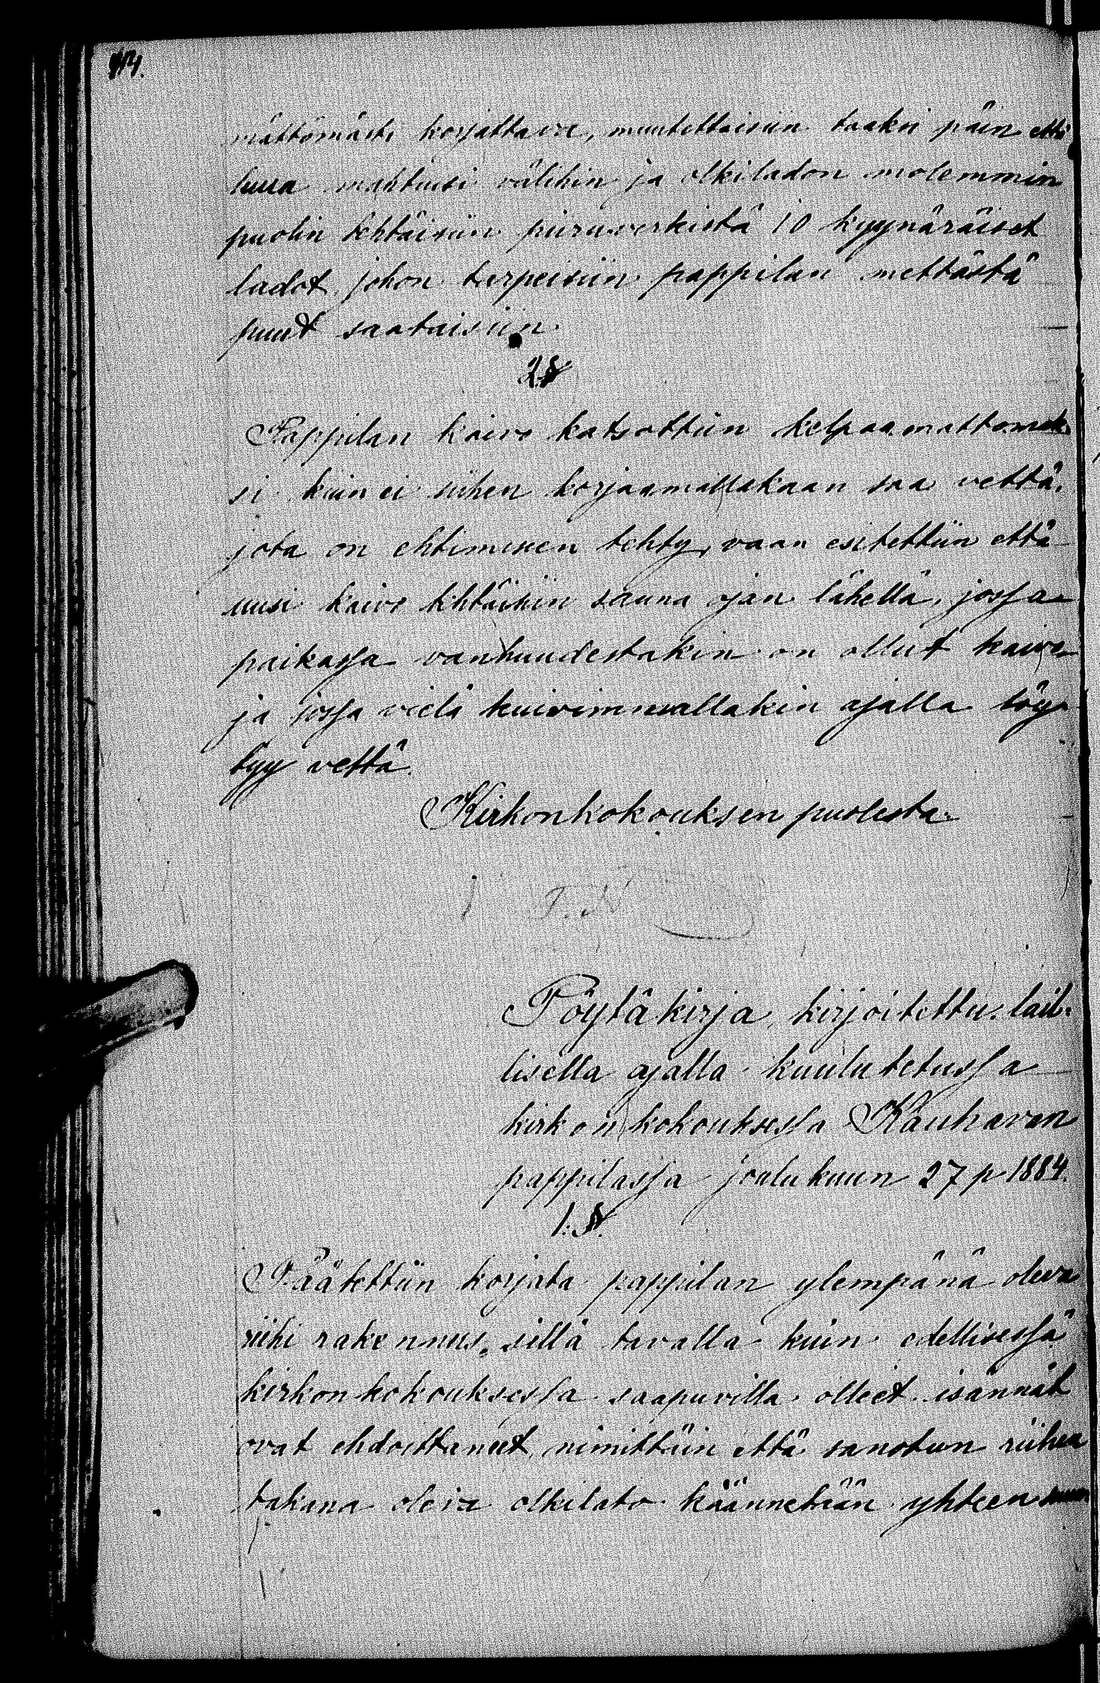 mättömästi korjattava, muutettaisiin taaksi päin että
luua mahtuisi välihin ja olkiladon molemmin
puolin tehtäisiin piiruverkistä 10 kyynäräiset
ladot, johon tarpeisiin pappilan mettästä
puut saataisiin.
2§
Pappilan kaivo katsottiin kelpaamattomak-
si kuin ei siihen korjaamallakaan saa vettä,
jota on ehtimiseen tehty, vaan esitettiin että
uusi kaivo tehtäisiin sauna ojan lähellä, jossa
paikassa vanhuudestakin on ollut kaivo
ja jossa vielä kuivimmallakin ajalla löy-
tyy vettä.
Kirkonkokouksen puolesta
Pöytäkirja, kirjoitettu lail-
lisella ajalla kuulutetussa
kirkonkokouksessa Kauhavan
pappilassa joulukuun 27 p 1884.
1.§.
Päätettiin korjata pappilan ylempänä oleva
riihi rakennus, sillä tavalla kuin edellisessä
kirkonkokouksessa saapuvilla olleet isännät
ovat ehdoittaneet, nimittäin että sanotun riihen
takana oleva olkilato käännetään yhteen